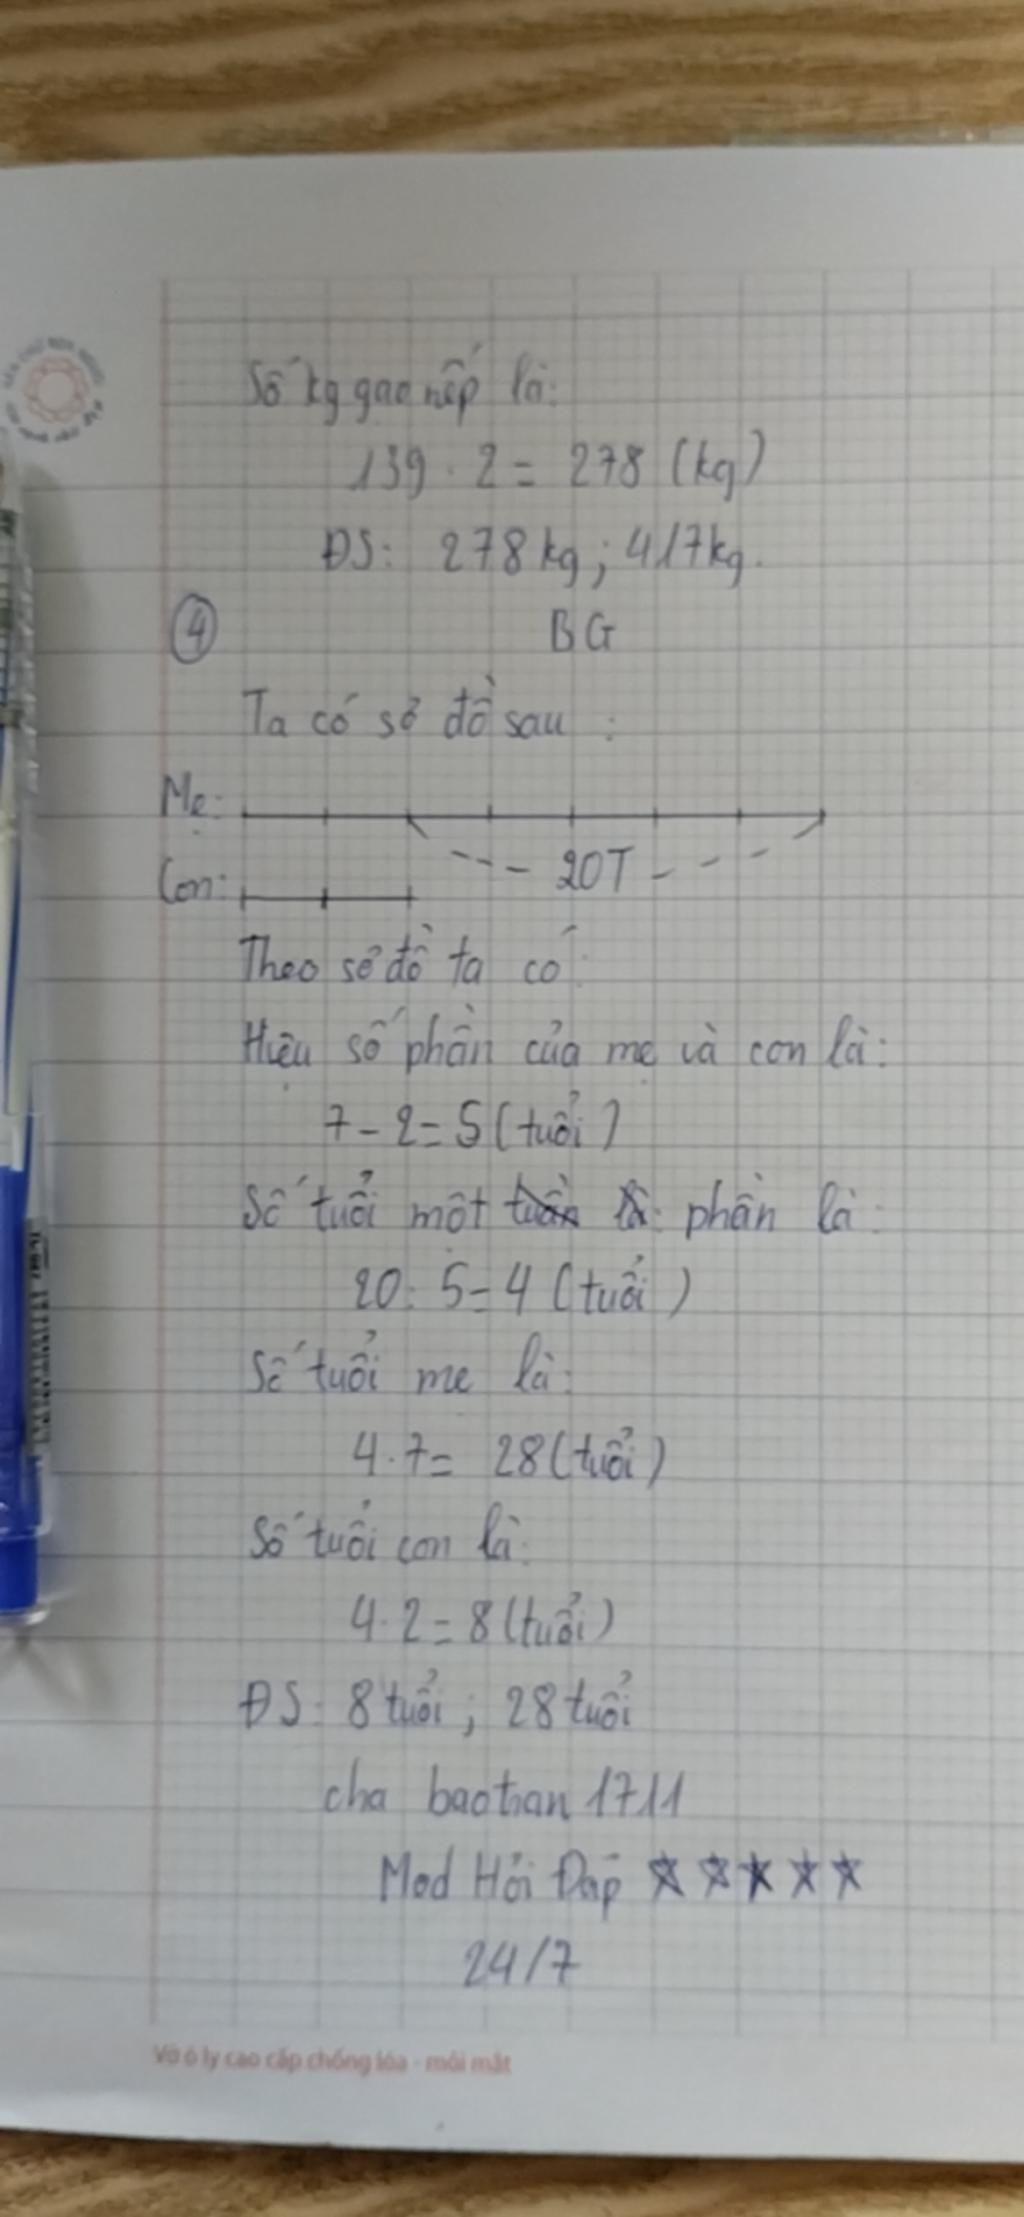 Số kg gạo nếp là:
139 . 2 = 278 (kg)
ĐS: 278kg; 417kg.
4 BG
Ta có sơ đồ sau :
Mẹ:
20T
Con:
Theo sơ đồ ta có:
Hiệu số phần của mẹ và con là:
7 - 2 = 5 (tuổi)
Số tuổi một phần là:
20 : 5 = 4 (tuổi)
Số tuổi mẹ là:
4 . 7 = 28 (tuổi)
Số tuổi con là:
4 . 2 = 8 (tuổi)
ĐS: 8 tuổi; 28 tuổi
cha baotran1711
Mod Hỏi Đáp ☆☆☆☆☆
24/7
Vở ô ly cao cấp chống lóa - mỏi mắt